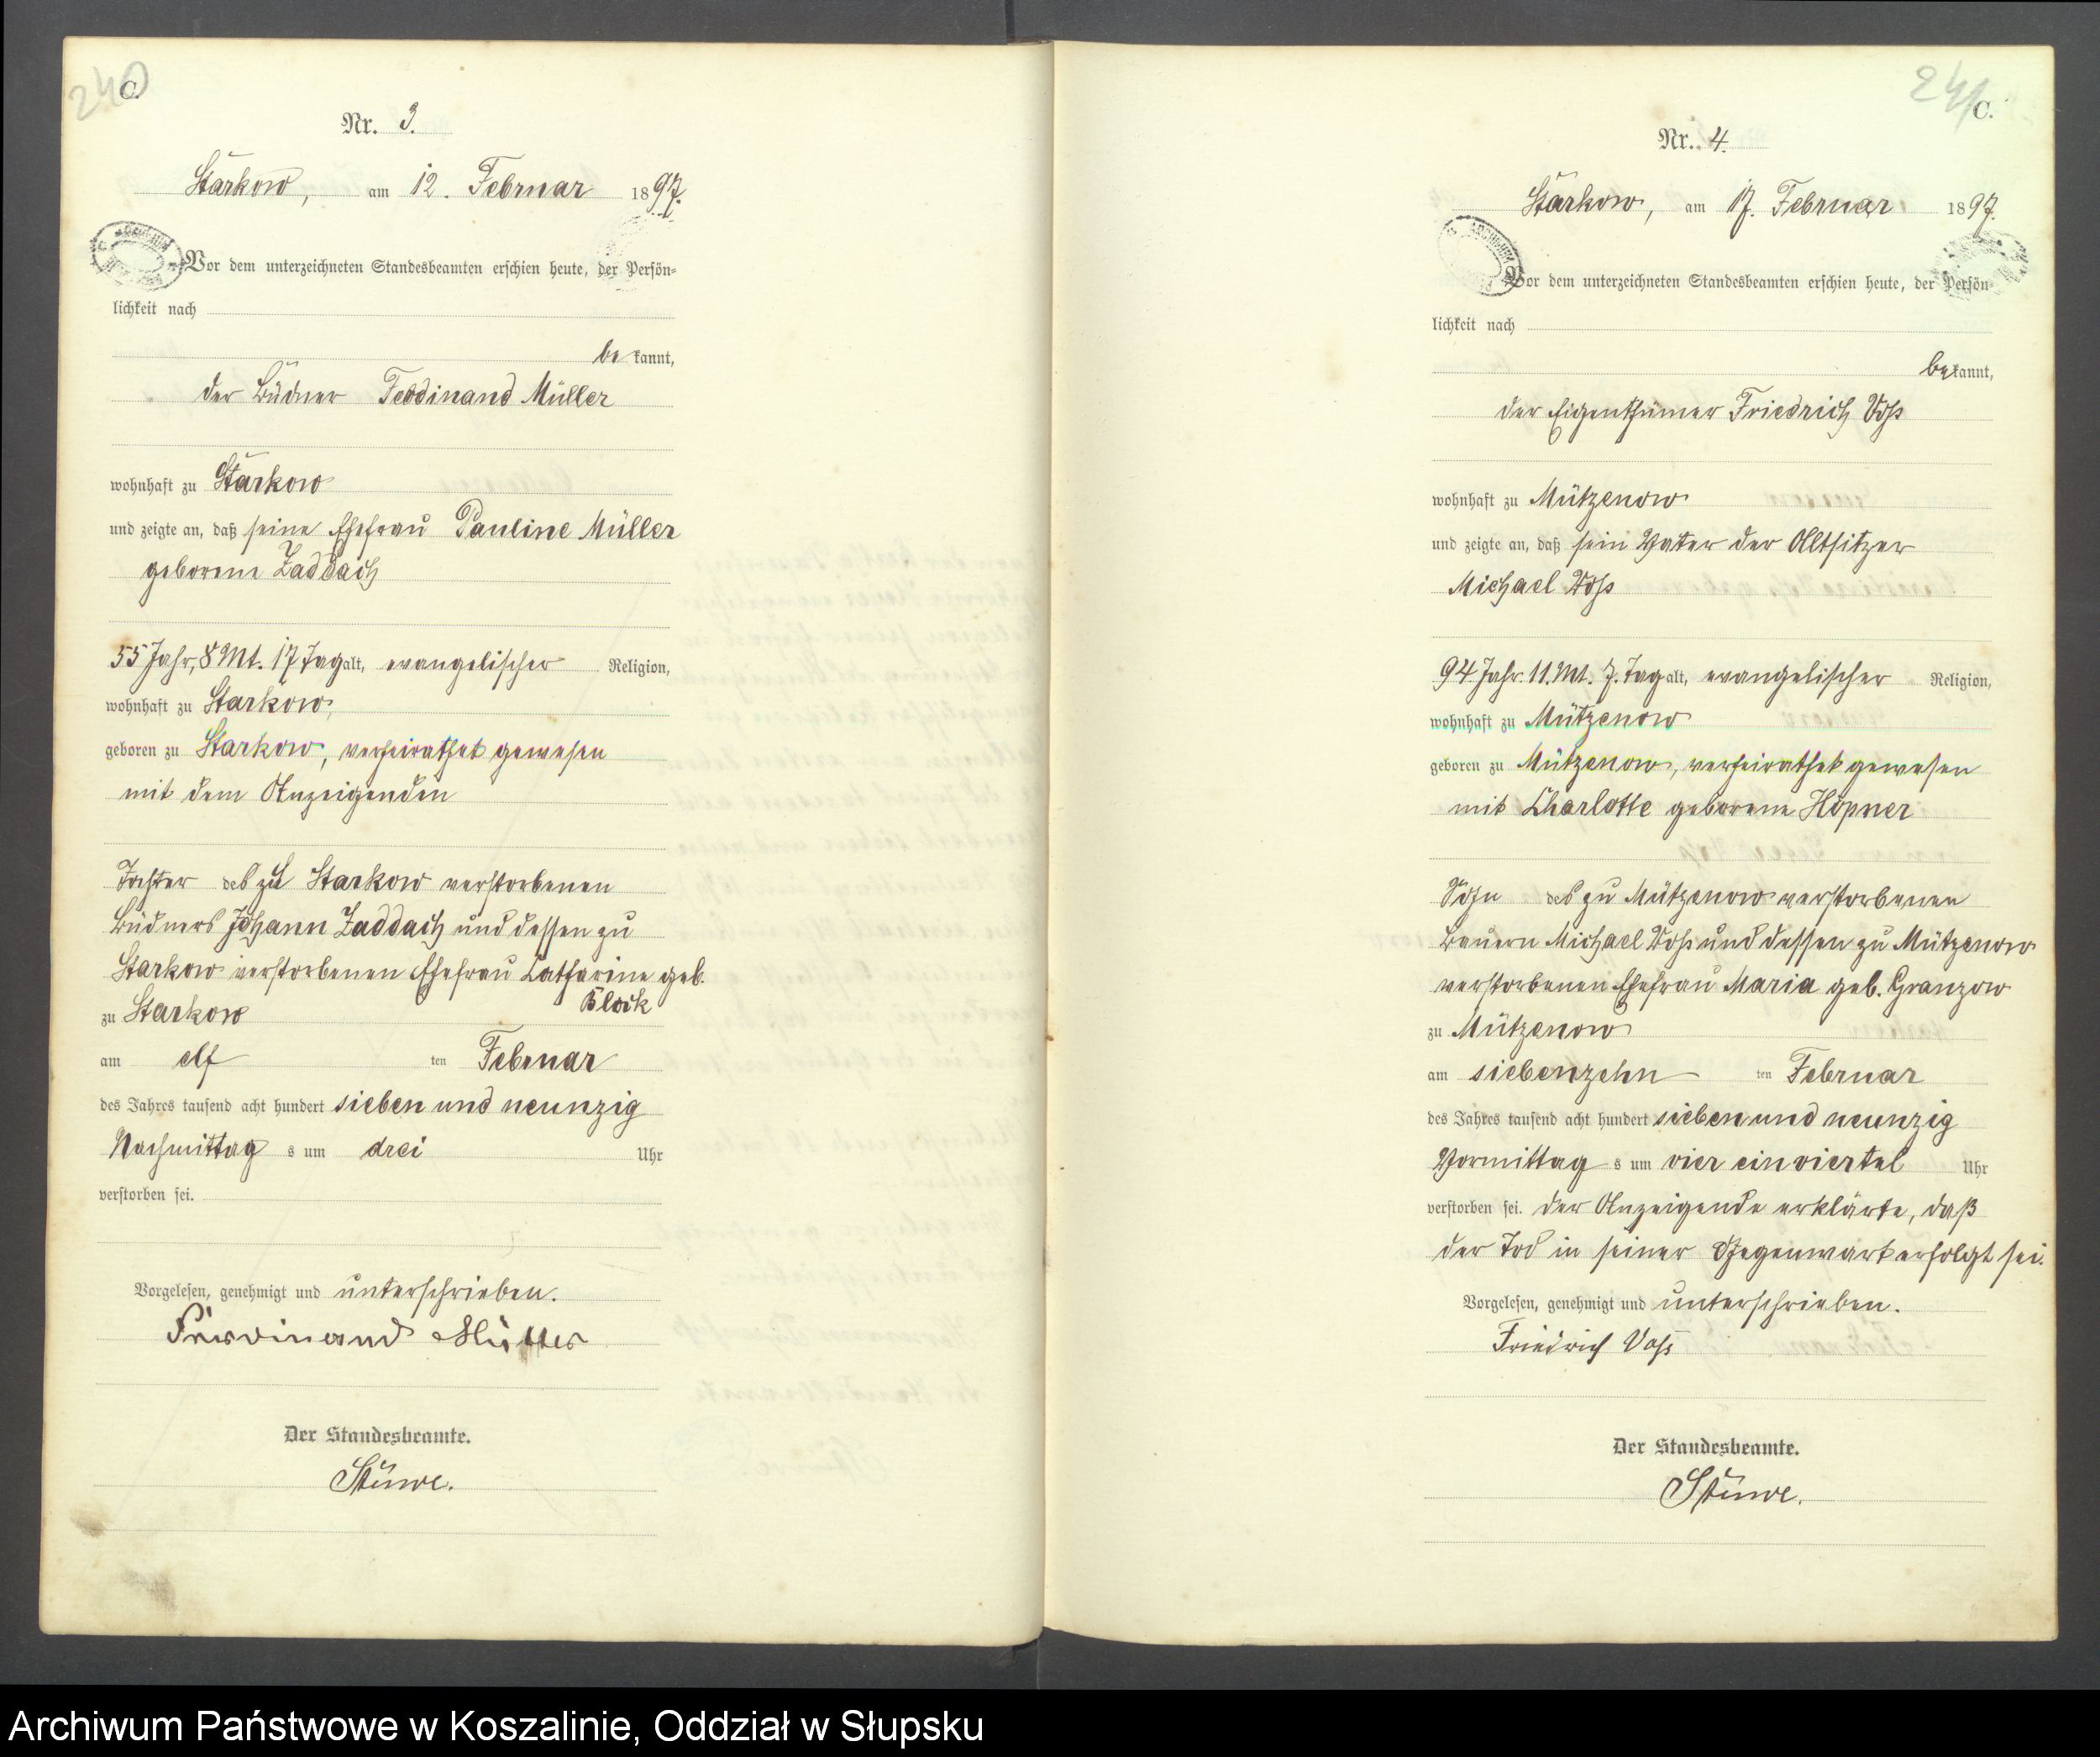 240
C.
Nr. 3.
Starkow, am 12. Februar 1897.
Vor dem unterzeichneten Standesbeamten erschien heute, der Persön-
lichkeit nach
be kannt,
der Büdner Ferdinand Müller
wohnhaft zu Starkow
und zeigte an, daß seine Ehefrau Pauline Müller
geborene Zaddach
55 Jahr, 8 Mt. 17 Tag alt, evangelischer Religion,
wohnhaft zu Starkow,
geboren zu Starkow, verheirathet gewesen
mit dem Anzeigenden
Tochter des zu Starkow verstorbenen
Büdners Johann Zaddach und dessen zu
Starkow verstorbenen Ehefrau Catharine geb.
Block
zu Starkow
am elf ten Februar
des Jahres tausend acht hundert sieben und neunzig
Nachmittag s um drei Uhr
verstorben sei.
Vorgelesen, genehmigt und unterschrieben.
Ferdinand Müller
Der Standesbeamte.
Stüwe.
241
C.
Nr. 4.
Starkow, am 17. Februar 1897.
Vor dem unterzeichneten Standesbeamten erschien heute, der Persön-
lichkeit nach
be kannt,
der Eigenthümer Friedrich Voß
wohnhaft zu Mützenow
und zeigte an, daß sein Vater der Altsitzer
Michael Voß
94 Jahr 11. Mt. 7. Tag alt, evangelischer Religion,
wohnhaft zu Mützenow
geboren zu Mützenow, verheirathet gewesen
mit Charlotte geborene Höpner
Sohn des zu Mützenow verstorbenen
Bauern Michael Voß und dessen zu Mützenow
verstorbenen Ehefrau Maria geb. Granzow
zu Mützenow
am siebenzehn ten Februar
des Jahres tausend acht hundert sieben und neunzig
Vormittag s um vier ein viertel Uhr
verstorben sei. Der Anzeigende erklärte, daß
der Tod in seiner Gegenwart erfolgt sei.
Vorgelesen, genehmigt und unterschrieben.
Friedrich Voß
Der Standesbeamte.
Stüwe.
Archiwum Państwowe w Koszalinie, Oddział w Słupsku